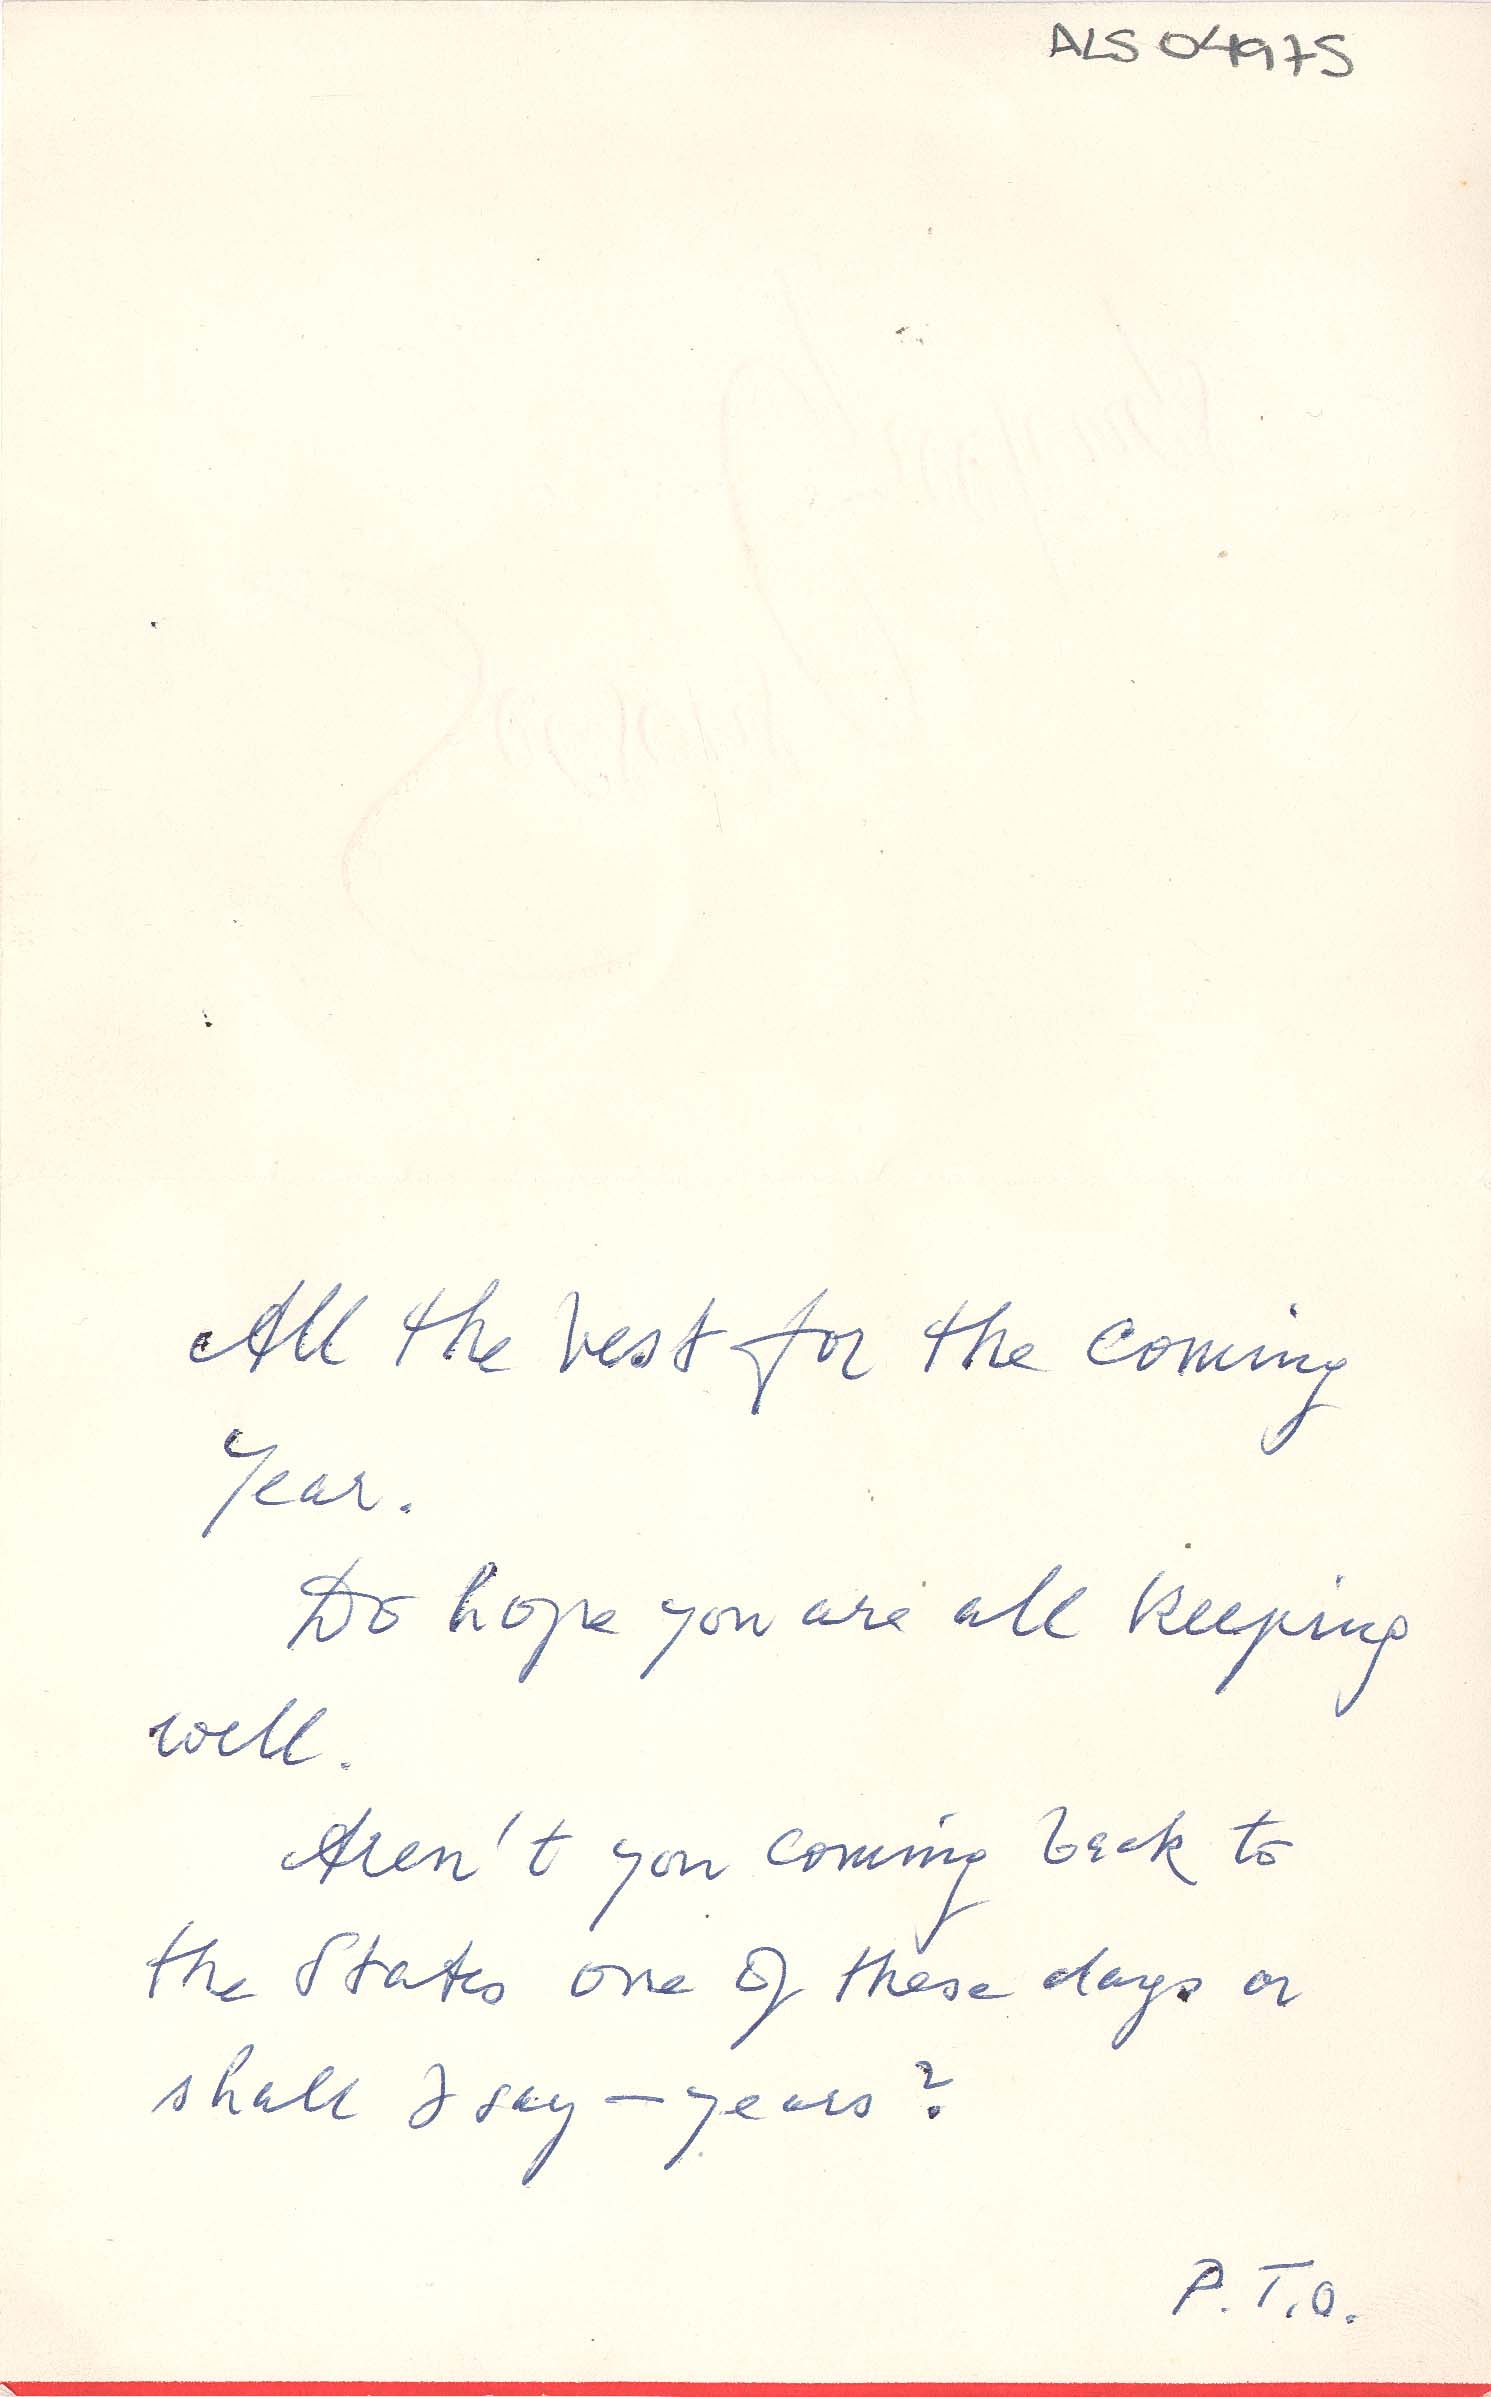 ALS 04975
All the best for the coming
Year.
Do hope you are all keeping
well.
Aren't you coming back to
the States one of these days or
shall I say — years?
P.T.O.